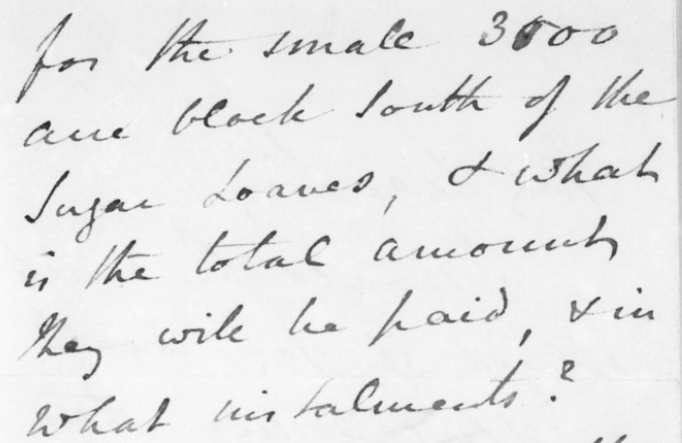 for the small 3500
acre block South of the
Sugar Loaves, & what
is the total amount
they will be paid, & in
what instalments?